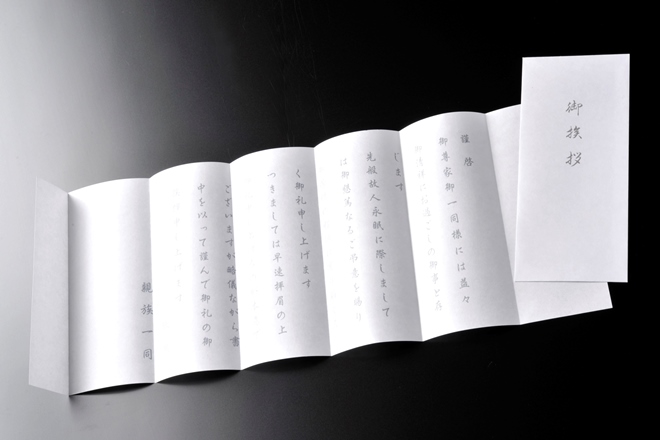 御挨拶
謹啓
御尊家御一同様には益々
御清祥にお過ごしの御事と存
じます
先般故人永眠に際しまして
は御懇篤なるご弔意を賜り
く御礼申し上げます
つきましては早速拝眉の上
ございますが略儀ながら書
中を以って謹んで御礼の御
親族一同